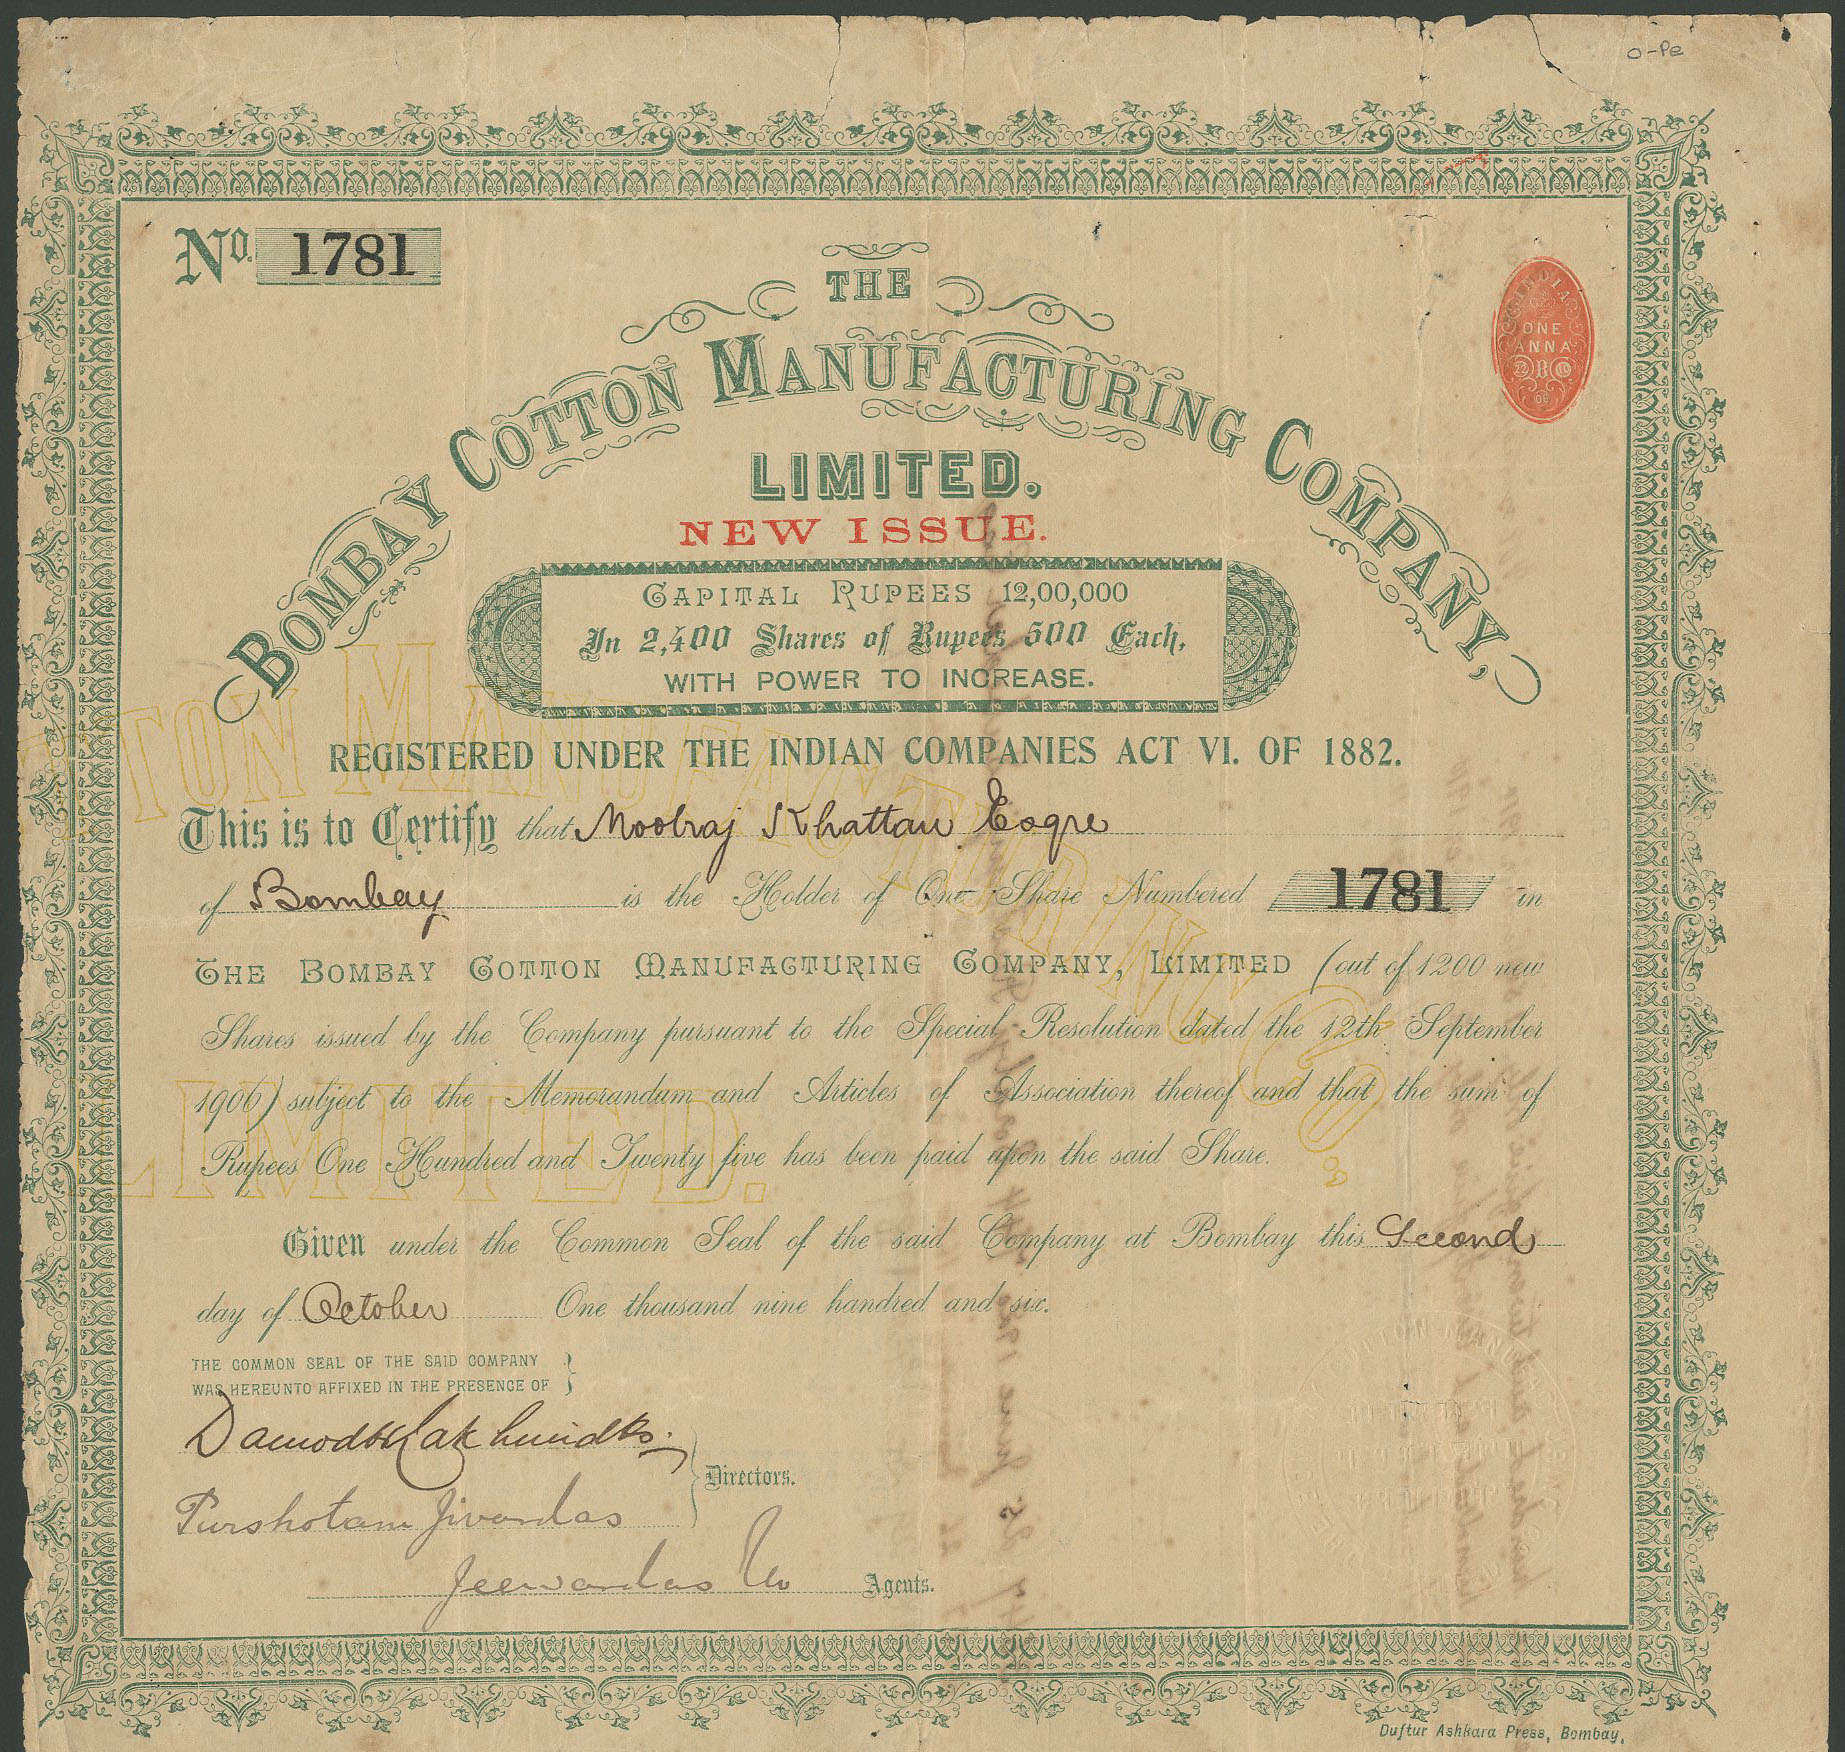 O-Pe
No. 1781
THE
BOMBAY COTTON MANUFACTURING COMPANY,
LIMITED.
NEW ISSUE.
INDIA
ONE
ANNA
22 B 10
06
CAPITAL RUPEES 12,00,000
In 2,400 Shares of Rupees 500 Each,
WITH POWER TO INCREASE.
REGISTERED UNDER THE INDIAN COMPANIES ACT VI. OF 1882.
This is to Certify that Moolraj Khattau Esqre
of Bombay is the Holder of One Share Numbered 1781 in
THE BOMBAY COTTON MANUFACTURING COMPANY, LIMITED (out of 1200 new
Shares issued by the Company pursuant to the Special Resolution dated the 12th September
1906) subject to the Memorandum and Articles of Association thereof and that the sum of
Rupees One Hundred and Twenty five has been paid upon the said Share.
TTON MANUFACTURING CO.
LIMITED.
Given under the Common Seal of the said Company at Bombay this Second
day of October One thousand nine hundred and six.
THE COMMON SEAL OF THE SAID COMPANY
WAS HEREUNTO AFFIXED IN THE PRESENCE OF
Purshotam Jivandas
Directors.
Jeewandas Co Agents.
Duftur Ashkara Press, Bombay.